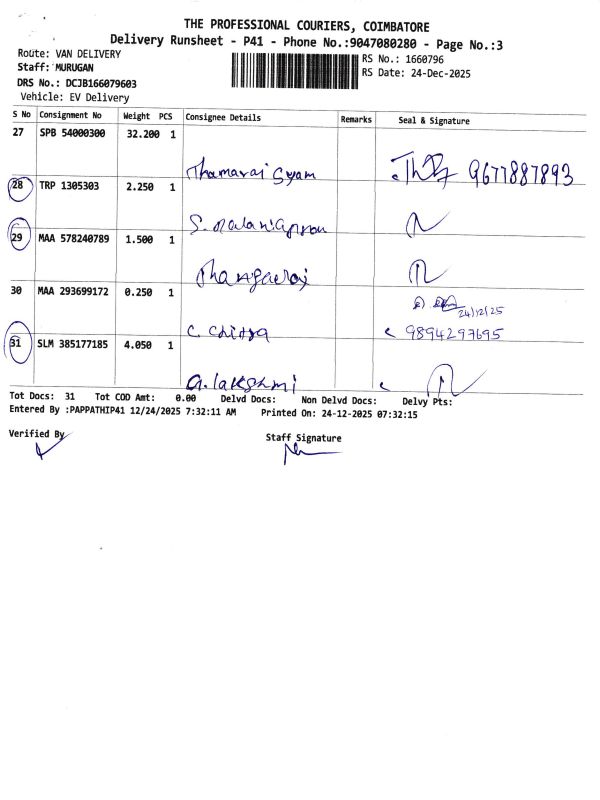 THE PROFESSIONAL COURIERS, COIMBATORE
Delivery Runsheet - P41 - Phone No.:9047080280 - Page No.:3
Route: VAN DELIVERY
Staff: MURUGAN
DRS No.: DCJB166079603
Vehicle: EV Delivery
RS No.: 1660796
RS Date: 24-Dec-2025
S No Consignment No Weight PCS Consignee Details Remarks Seal & Signature
27 SPB 54000300 32.200 1
Thamarai Syam 9677887893
28 TRP 1305303 2.250 1
S.
29 MAA 578240789 1.500 1
Thangaraj
30 MAA 293699172 0.250 1
24/12/25
C. Chitra 9894297695
31 SLM 385177185 4.050 1
G. lakshmi
Tot Docs: 31 Tot COD Amt: 0.00 Delvd Docs: Non Delvd Docs: Delvy Pts:
Entered By :PAPPATHIP41 12/24/2025 7:32:11 AM Printed On: 24-12-2025 07:32:15
Verified By
Staff Signature